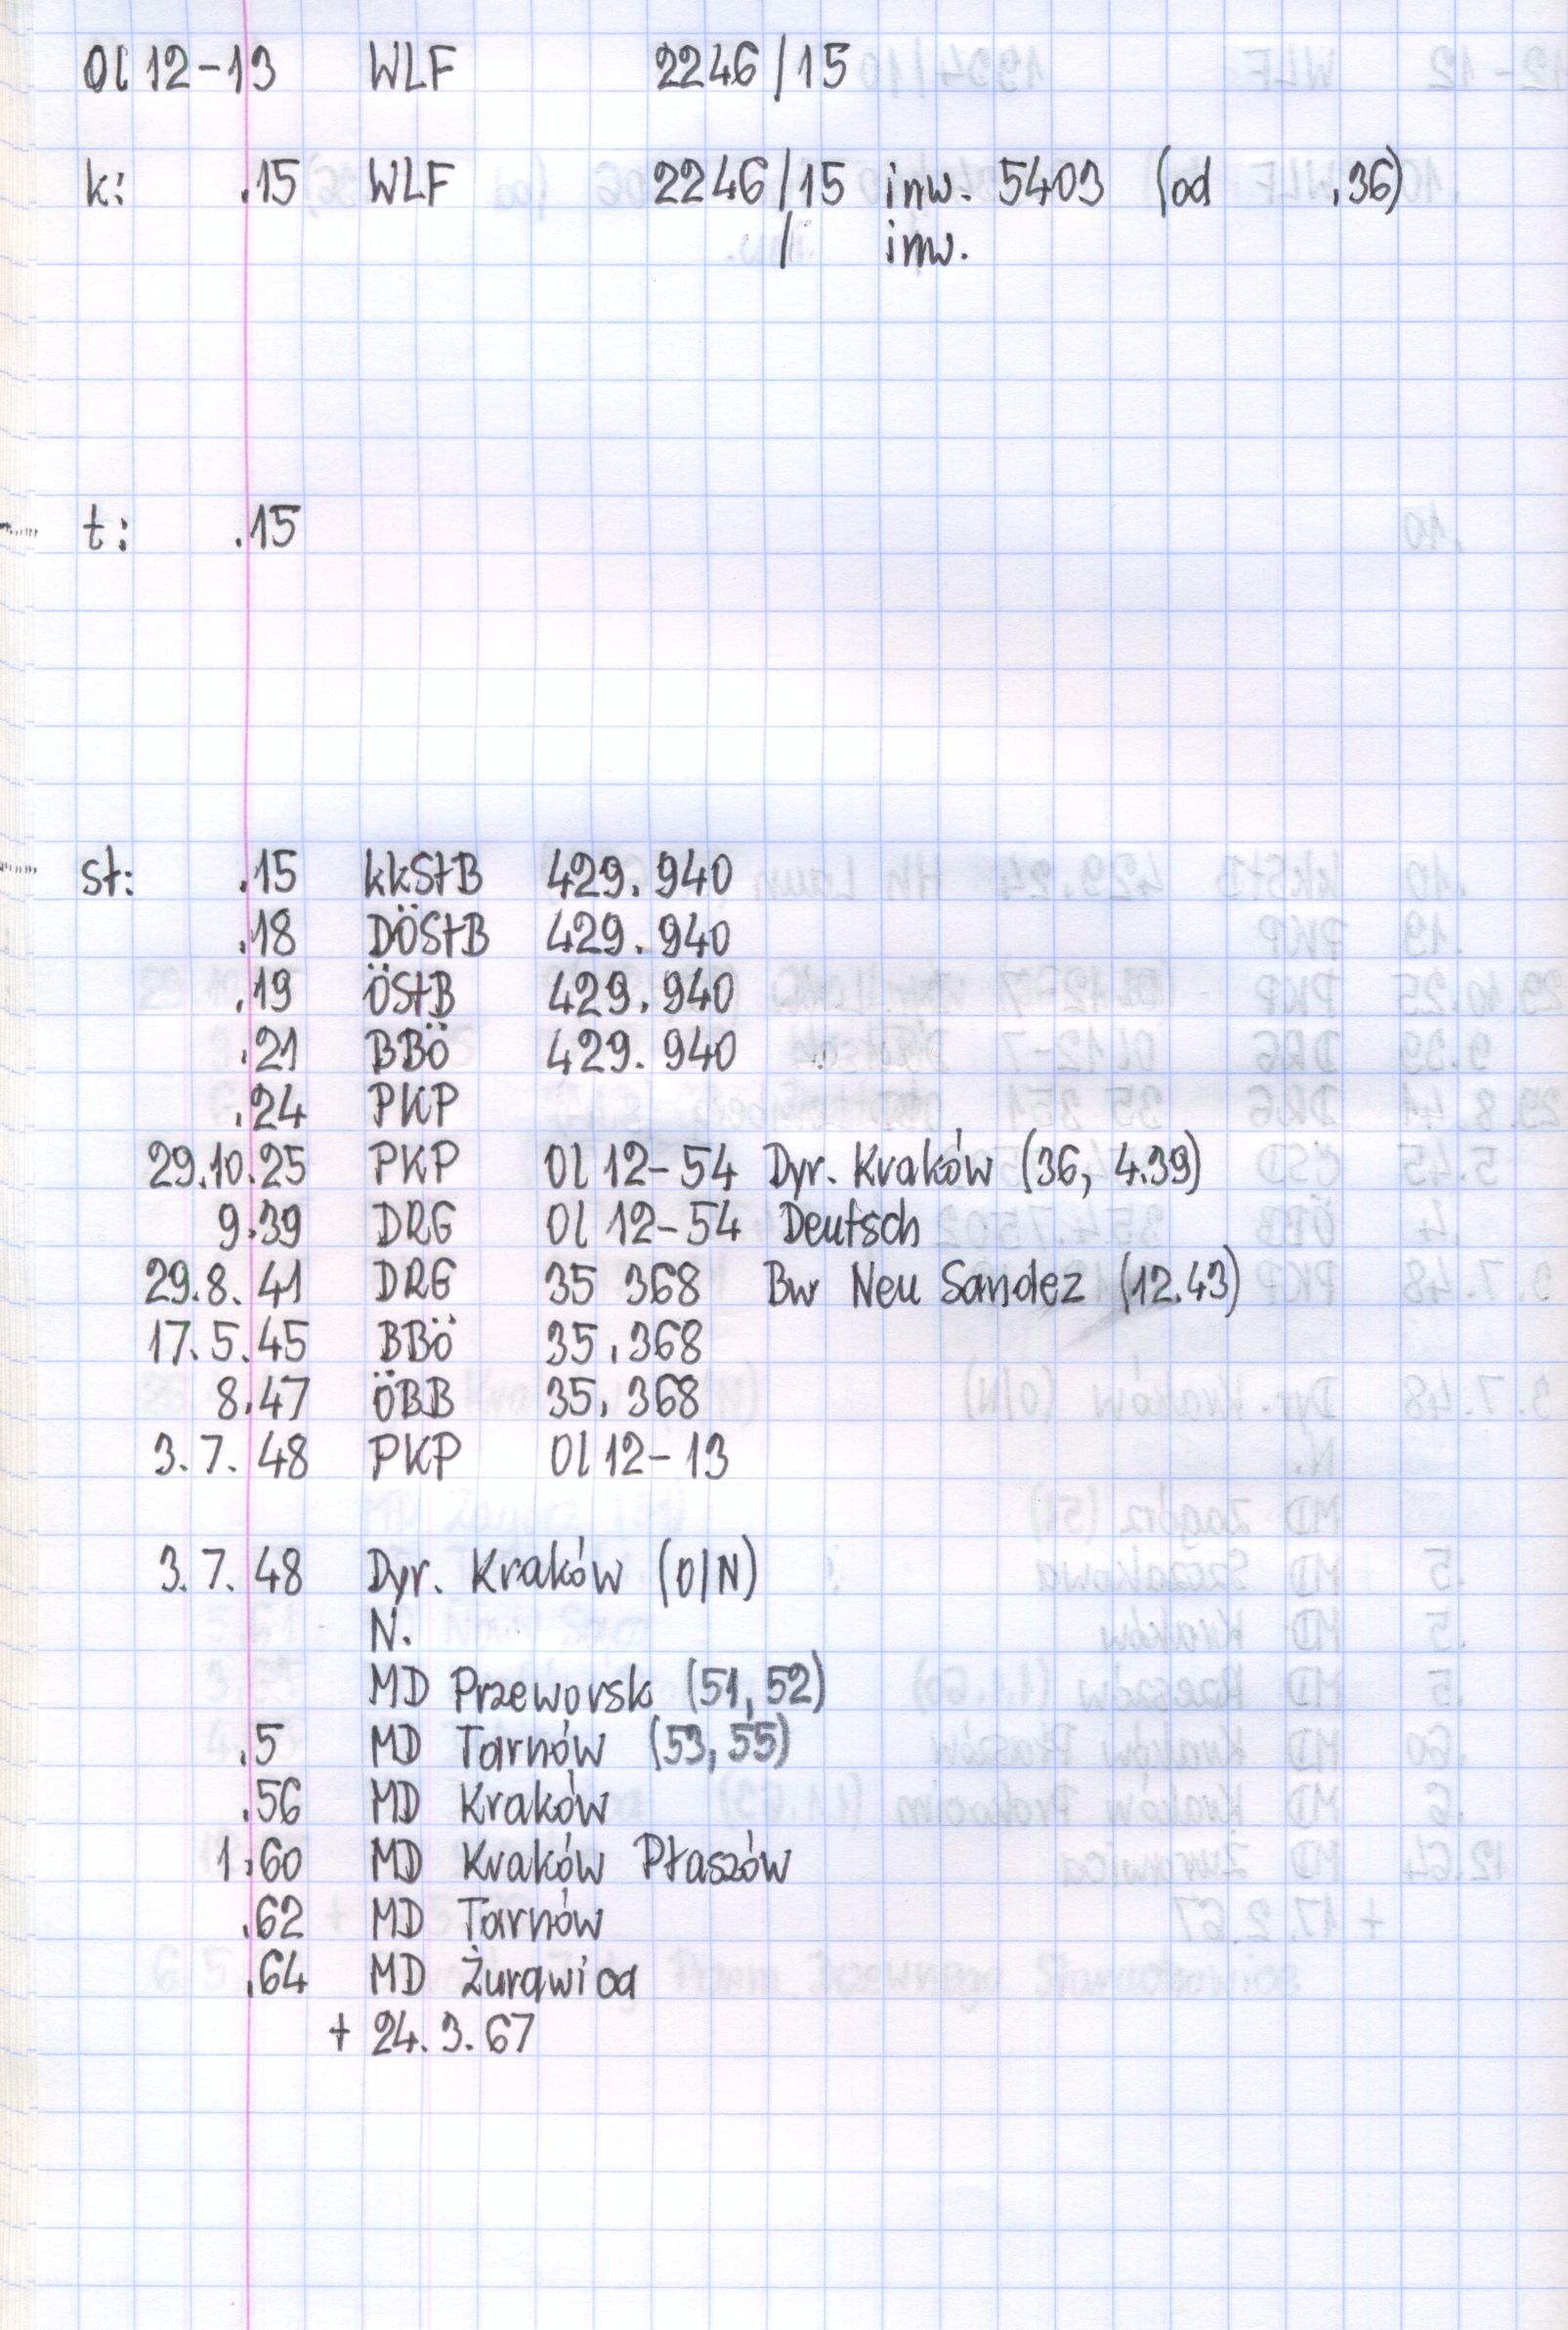 Ol 12-13 WLF 2246/15
k: .15 WLF 2246/15 inw. 5403 (od .36)
/ inw.
t: .15
st: .15 kkStB 429.940
.18 DÖStB 429.940
.19 ÖStB 429.940
.21 BBÖ 429.940
.24 PKP
29.10.25 PKP Ol 12-54 Dyr. Kraków (36, 4.39)
9.39 DRG Ol 12-54 Deutsch
29.8.41 DRG 35 368 Bw Neu Sandez (12.43)
17.5.45 BBÖ 35.368
8.47 ÖBB 35.368
3.7.48 PKP Ol 12-13
3.7.48 Dyr. Kraków (O/N)
N.
MD Przeworsk (51, 52)
.5 MD Tarnów (53, 55)
.56 MD Kraków
1.60 MD Kraków Płaszów
.62 MD Tarnów
.64 MD Żurawica
+ 24.3.67